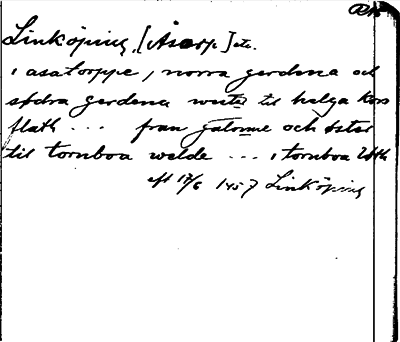 Linköping, [Åsorp] etc.
i asatorppe, norra gerdena och
södra gerdena wester til helga kors
flath ... fran galome och öster
til tornboa welde ... i tornboa
eft 17/6 1457 Linköping